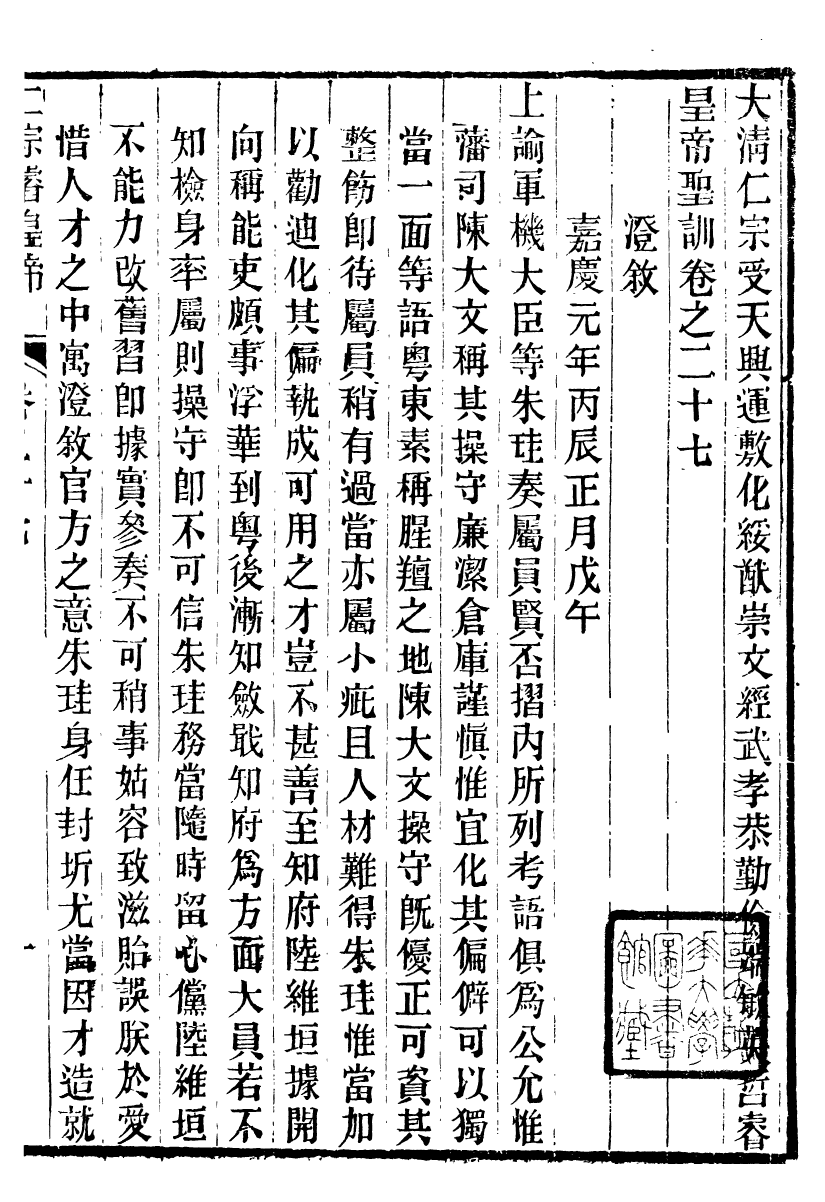 大淸仁宗受天興運敷化綏猷崇文經武孝恭勤儉端敏英哲睿
皇帝聖訓卷之二十七
澄敘
嘉慶元年丙辰正月戊午
上諭軍機大臣等朱珪奏屬員賢否摺內所列考語俱爲公允惟
藩司陳大文稱其操守廉潔倉庫謹愼惟宜化其偏僻可以獨
當一面等語粵東素稱腥羶之地陳大文操守旣優正可資其
整飭卽待屬員稍有過當亦屬小疵且人材難得朱珪惟當加
以勸迪化其偏執成可用之才豈不甚善至知府陸維垣據開
向稱能吏頗事浮華到粵後漸知斂戢知府爲方面大員若不
知檢身率屬則操守卽不可信朱珪務當隨時留心儻陸維垣
不能力改舊習卽據實參奏不可稍事姑容致滋貽誤朕於愛
惜人才之中寓澄敘官方之意朱珪身任封圻尤當因才造就
仁宗睿皇帝